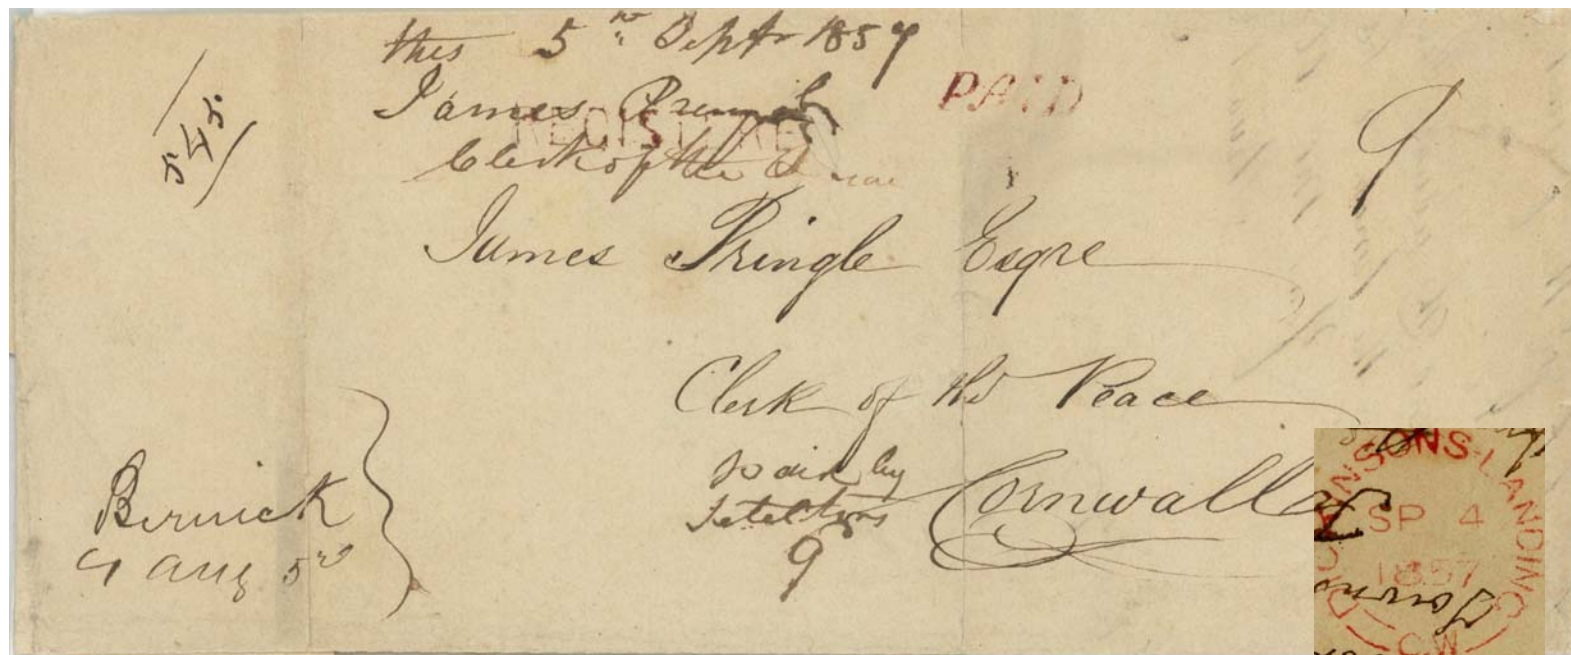 this 5th Septr 1857
PAID
James Pringle
REGISTERED
Clerk of the
9
545
James Pringle Esqre
Clerk of the Peace
Paid by
Cornwall
9
Berwick
Aug 5
DICKINSONS-LANDING
SP 4
1857
C.W